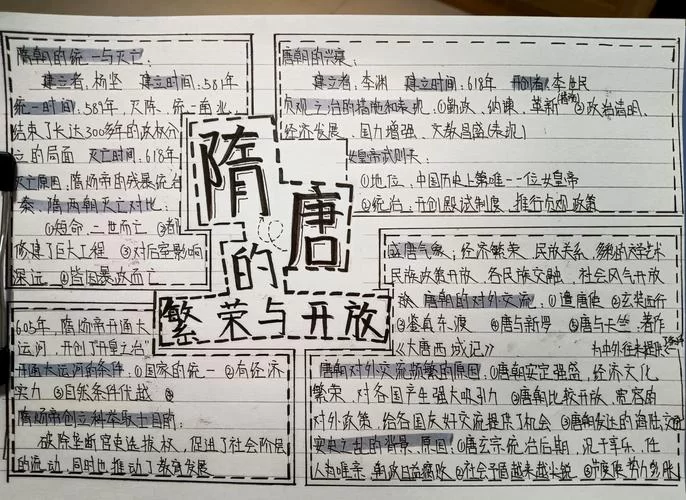 隋朝的统一与灭亡:
建立者:杨坚 建立时间:581年
统一时间:589年,灭陈、统一南北,
结束了长达300多年的政权分
立的局面 灭亡时间:618年
灭亡原因:隋炀帝的残暴统治
秦、隋两朝灭亡对比:
①短命,二世而亡 ②都
修建了巨大工程 ③对后室影响
深远 ④皆因暴政而亡
605年,隋炀帝开通大
运河,开创了"开皇之治"
开通大运河的条件:①国家的统一 ②有经济
实力 ③自然条件优越
隋炀帝创立科举取士目的:
破除垄断官吏选拔权,促进了社会阶层
的流动,同时也推动了教育发展
隋唐
的
繁荣与开放
唐朝的兴衰:
建立者:李渊 建立时间:618年 开创者:李世民
贞观之治的措施和表现:①勤政、纳谏、革新(措施) ②政治清明、
经济发展、国力增强、文教昌盛(表现)
女皇帝武则天:
①地位:中国历史上第唯一一位女皇帝
②统治:开创殿试制度,推行贞观政策
盛唐气象:经济繁荣、民族关系、多彩的文学艺术
民族政策开放、各民族交融、社会风气开放
唐朝的对外交流:①遣唐使 ②玄奘西行
③鉴真东渡 ④唐与新罗 ⑤唐与天竺,著作
《大唐西域记》 为中外往来提供
唐朝对外交流频繁的原因:①唐朝安定强盛,经济文化
繁荣,对各国产生强大吸引力 ②唐朝比较开放、宽容的
对外政策,给各国友好交流提供了机会 ③唐朝发达的海陆交通
安史之乱的背景、原因:①唐玄宗统治后期,沉于享乐,任
人为唯亲,朝政日益腐败 ②社会矛盾越来越尖锐 ③节度使势力膨胀